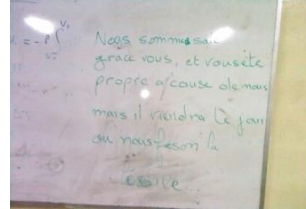 = -P
Nous sommes sale
grace vous, et vous ete
propre a cause de nous
mais il viendra le jour
ou nous feson la